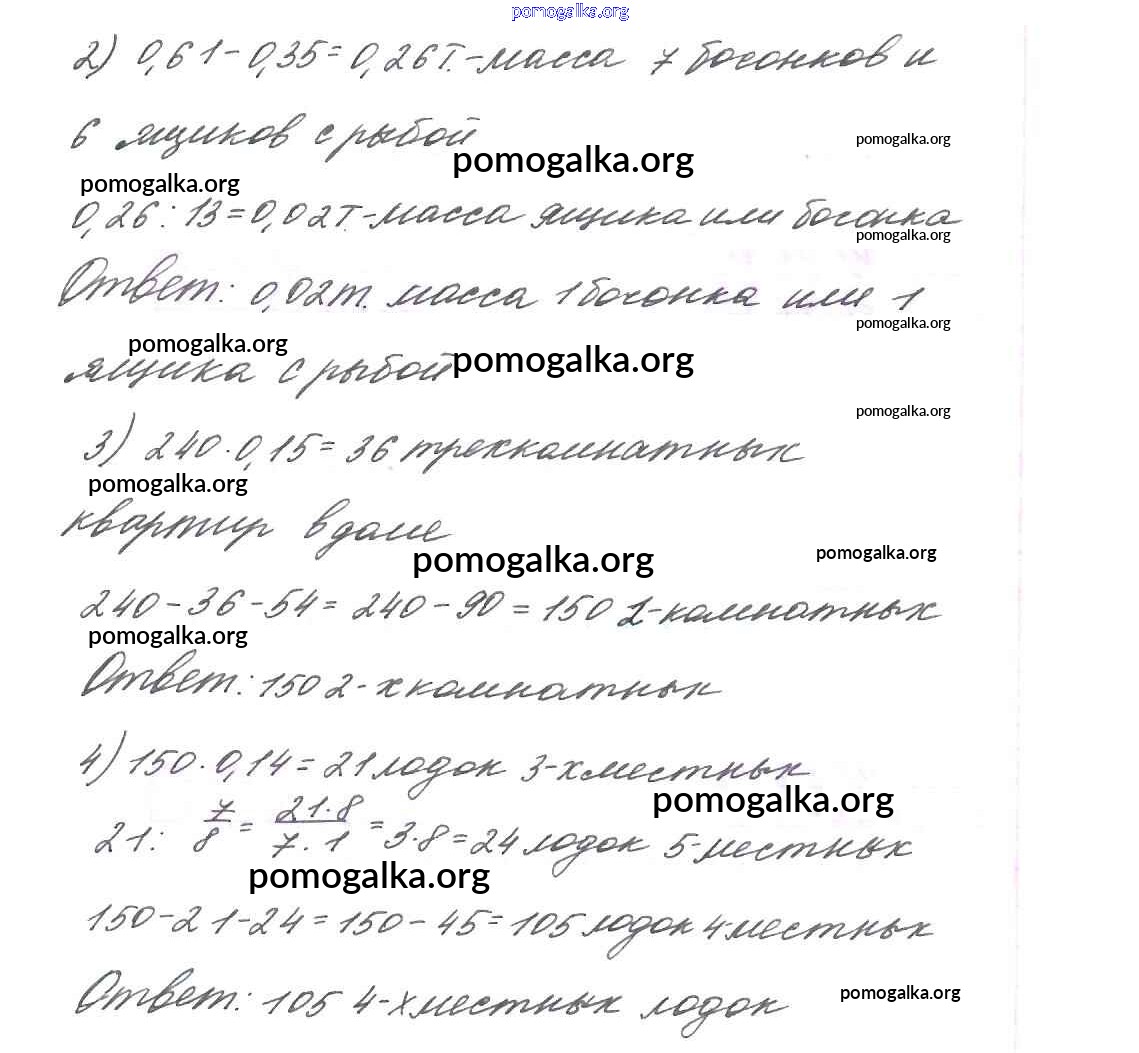 pomogalka.org
2) 0,61-0,35=0,26т.-масса 7 босонков и
6 ящиков с рыбой
pomogalka.org
pomogalka.org
pomogalka.org
0,26:13=0,02т.-масса ящика или босонка
pomogalka.org
Ответ: 0,02т. масса 1 босонка или 1
pomogalka.org
pomogalka.org
pomogalka.org
ящика с рыбой
pomogalka.org
3) 240·0,15=36 трехкомнатных
pomogalka.org
квартир в доме
pomogalka.org
pomogalka.org
240-36-54=240-90=150 2-комнатных
pomogalka.org
Ответ: 150 2-х комнатных
4) 150·0,14=21 лодок 3-хместных
pomogalka.org
21: 7/8 = 21·8/7·1 = 3·8=24 лодок 5-местных
pomogalka.org
150-21-24=150-45=105 лодок 4местных
Ответ: 105 4-хместных лодок
pomogalka.org